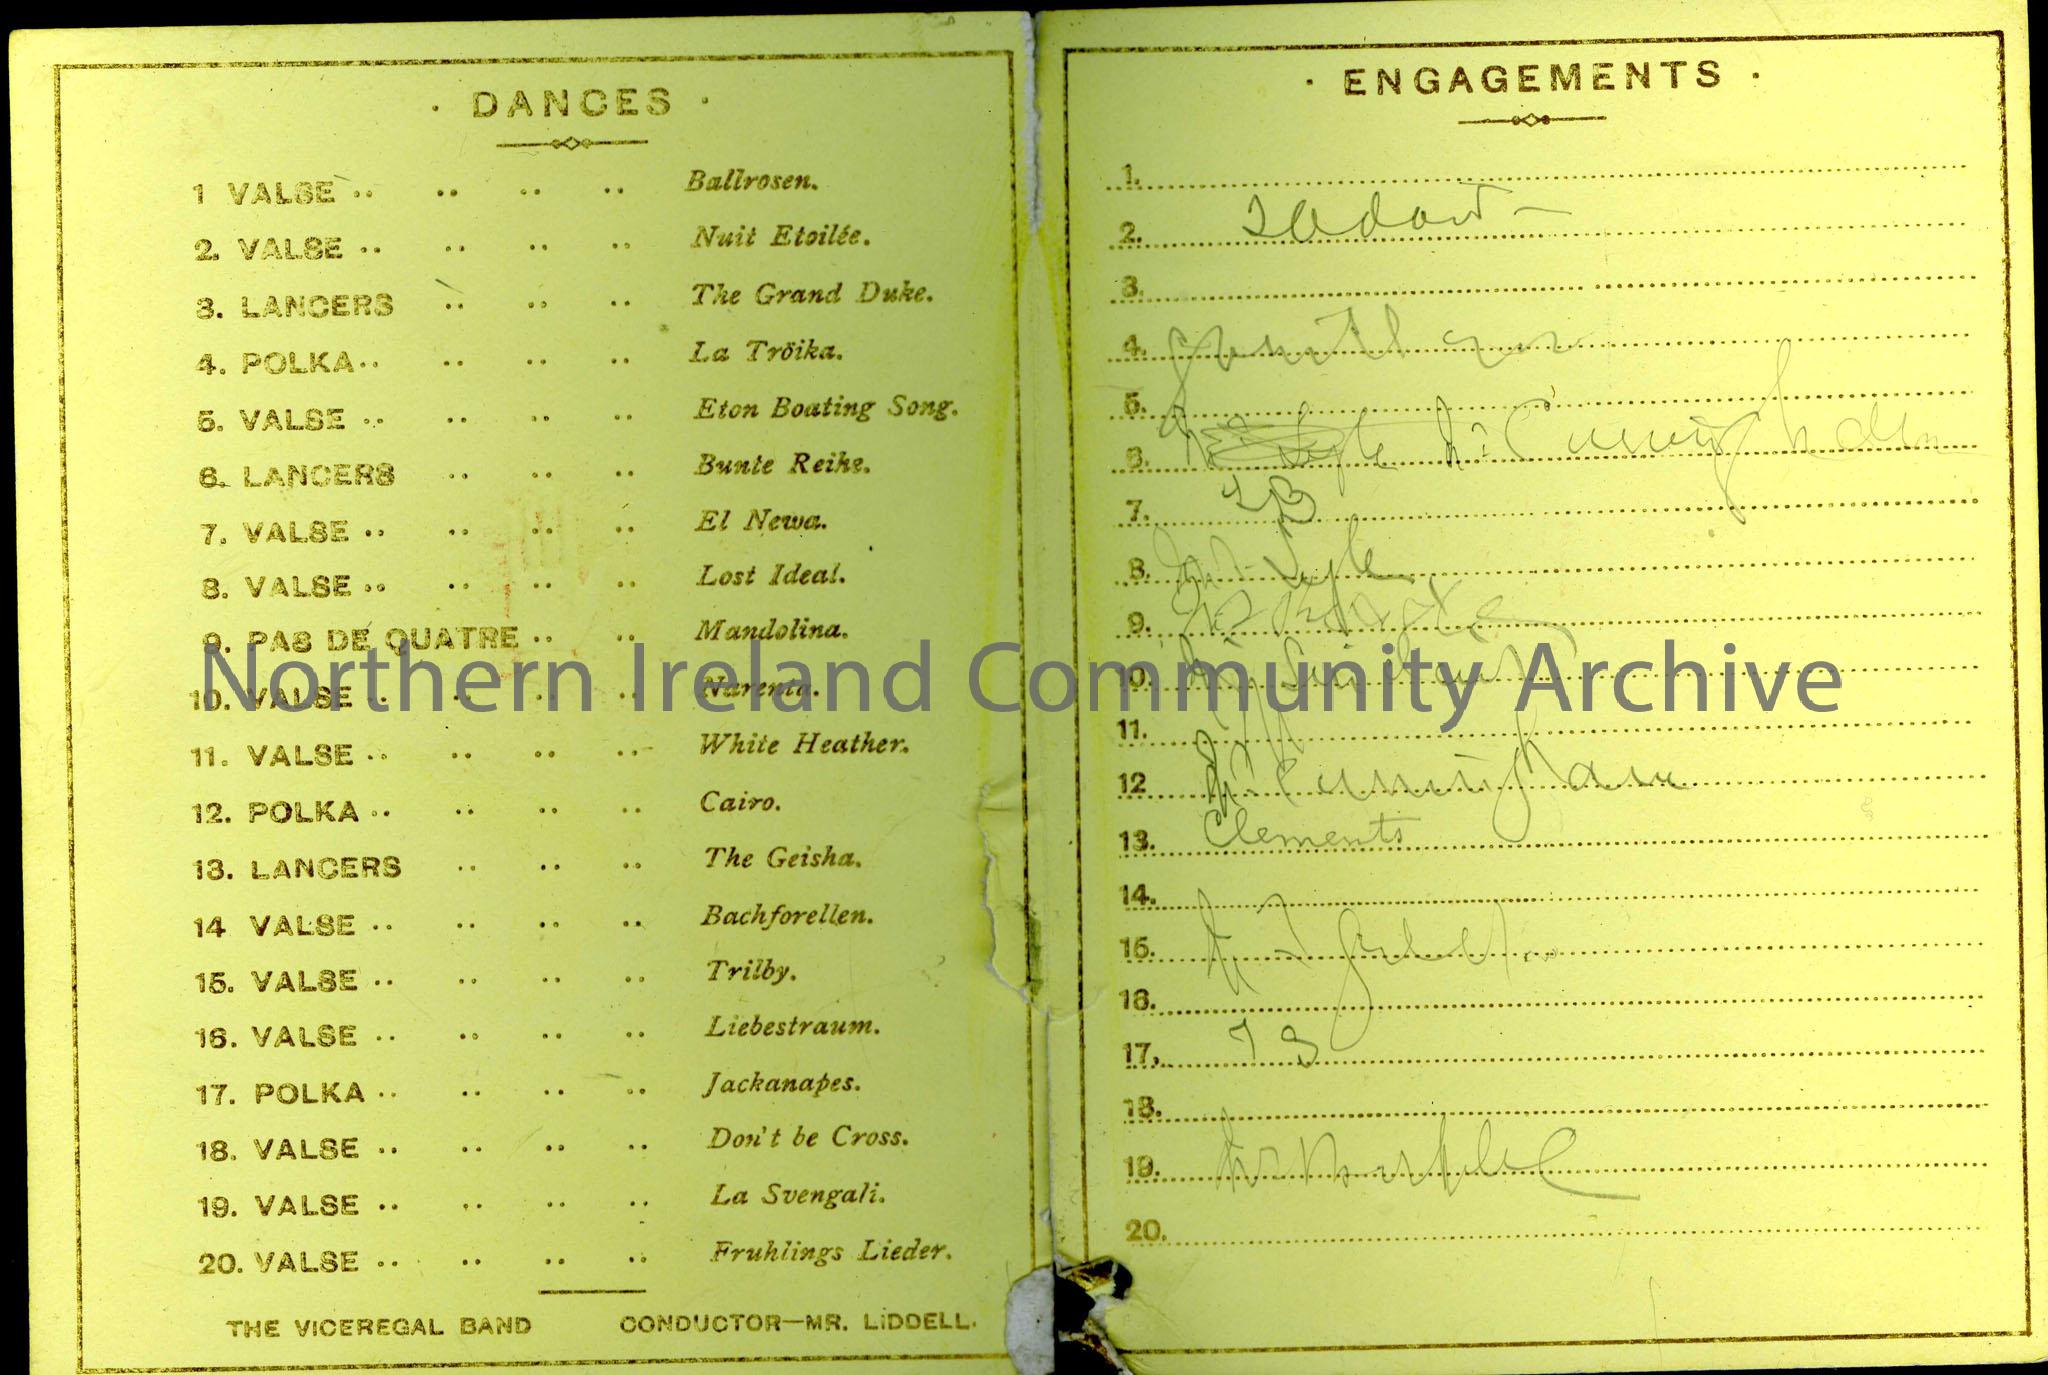 · DANCES ·
1 VALSE .. .. .. .. Ballrosen.
2. VALSE .. .. .. .. Nuit Etoilée.
3. LANCERS .. .. .. The Grand Duke.
4. POLKA .. .. .. .. La Tröika.
5. VALSE .. .. .. .. Eton Boating Song.
6. LANCERS .. .. .. Bunte Reihe.
7. VALSE .. .. .. .. El Newa.
8. VALSE .. .. .. .. Lost Ideal.
9. PAS DE QUATRE .. .. Mandolina.
10. VALSE .. .. .. .. Narenta.
11. VALSE .. .. .. .. White Heather.
12. POLKA .. .. .. .. Cairo.
13. LANCERS .. .. .. The Geisha.
14 VALSE .. .. .. .. Bachforellen.
15. VALSE .. .. .. .. Trilby.
16. VALSE .. .. .. .. Liebestraum.
17. POLKA .. .. .. .. Jackanapes.
18. VALSE .. .. .. .. Don't be Cross.
19. VALSE .. .. .. .. La Svengali.
20. VALSE .. .. .. .. Fruhlings Lieder.
THE VICEREGAL BAND CONDUCTOR—MR. LIDDELL.
· ENGAGEMENTS ·
1.
2.
3.
4.
5.
6. Lyle Mr Cunningham
7.
8. Mr Lyle
9.
10. Sinclair
11.
12 Mr Cunningham
13. Clements
14.
15.
16.
17.
18.
19.
20.
Northern Ireland Community Archive